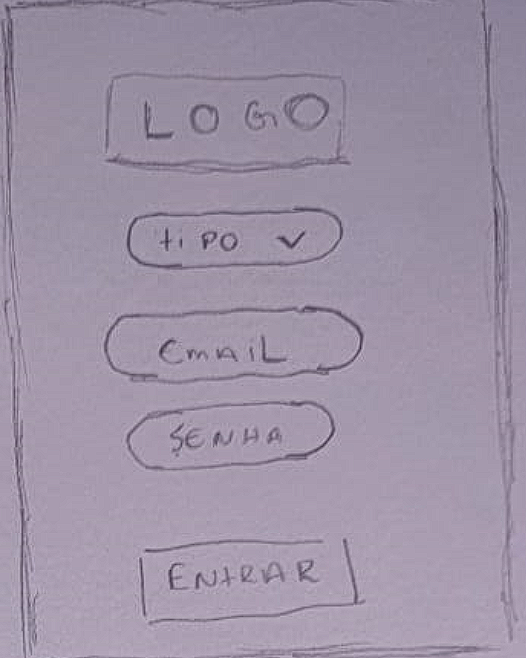 LOGO
tiPO
EmAiL
SENHA
ENTRAR